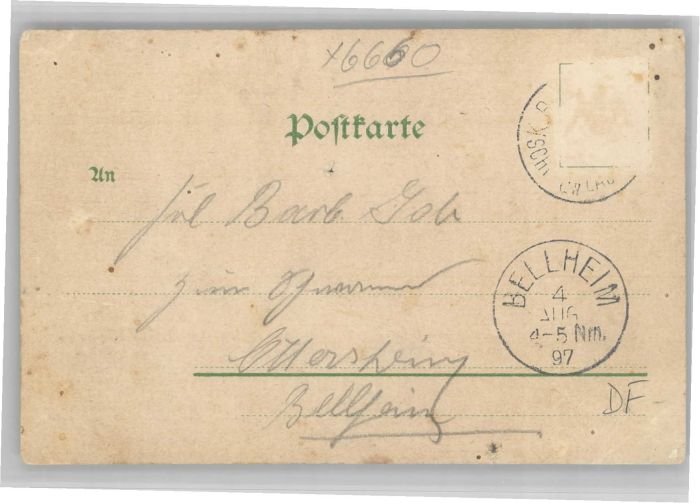 x6660
Postkarte
An
Frl Barb. Job
zum
Ottersheim
Bellheim
BELLHEIM
4
AUG
4-5 Nm.
97
DF